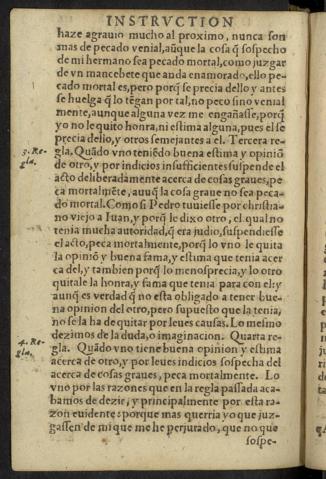 INSTRVCTION
haze agrauio mucho al proximo, nunca son
mas de pecado venial, aũque la cosa q̃ sospecho
de mi hermano sea pecado mortal, como juzgar
de vn mancebete que anda enamorado, ello pe-
cado mortal es, pero porq̃ se precia dello y antes
se huelga q̃ lo tẽgan por tal, no peco sino venial
mente, aunque alguna vez me engañasse, porq̃
yo no le quito honra, ni estima alguna, pues el se
precia dello, y otros semejantes a el. Tercera re-
3. Re-
gla.
gla. Quãdo vno teniẽdo buena estima y opiniõ
de otro, y por indicios insufficientes suspende el
acto deliberadamente acerca de cosas graues, pe
ca mortalmẽte, auuq̃ la cosa graue no sea peca-
do mortal. Como si Pedro tuuiesse por christia-
no viejo a Iuan, y porq̃ le dixo otro, el qual no
tenia mucha autoridad, q̃ era judio, suspendiesse
el acto, peca mortalmente, porq̃ lo vno le quita
la opiniõ y buena fama, y estima que tenia acer
ca del, y tambien porq̃ lo menosprecia, y lo otro
quitale la honra, y fama que tenia para con el: y
aunq̃ es verdad q̃ no esta obligado a tener bue-
na opinion del otro, pero supuesto que la tenia,
no se la ha de quitar por leues causas. Lo mesmo
dezimos de la duda, o imaginacion. Quarta re-
4. Re-
gla.
gla. Quãdo vno tiene buena opinion y estima
acerca de otro, y por leues indicios sospecha del
acerca de cosas graues, peca mortalmente. Lo
vno por las razones que en la regla passada aca-
bamos de dezir, y principalmente por esta ra-
zon euidente: porque mas querria yo que juz-
gassen de mi que me he perjurado, que no que
sospe-